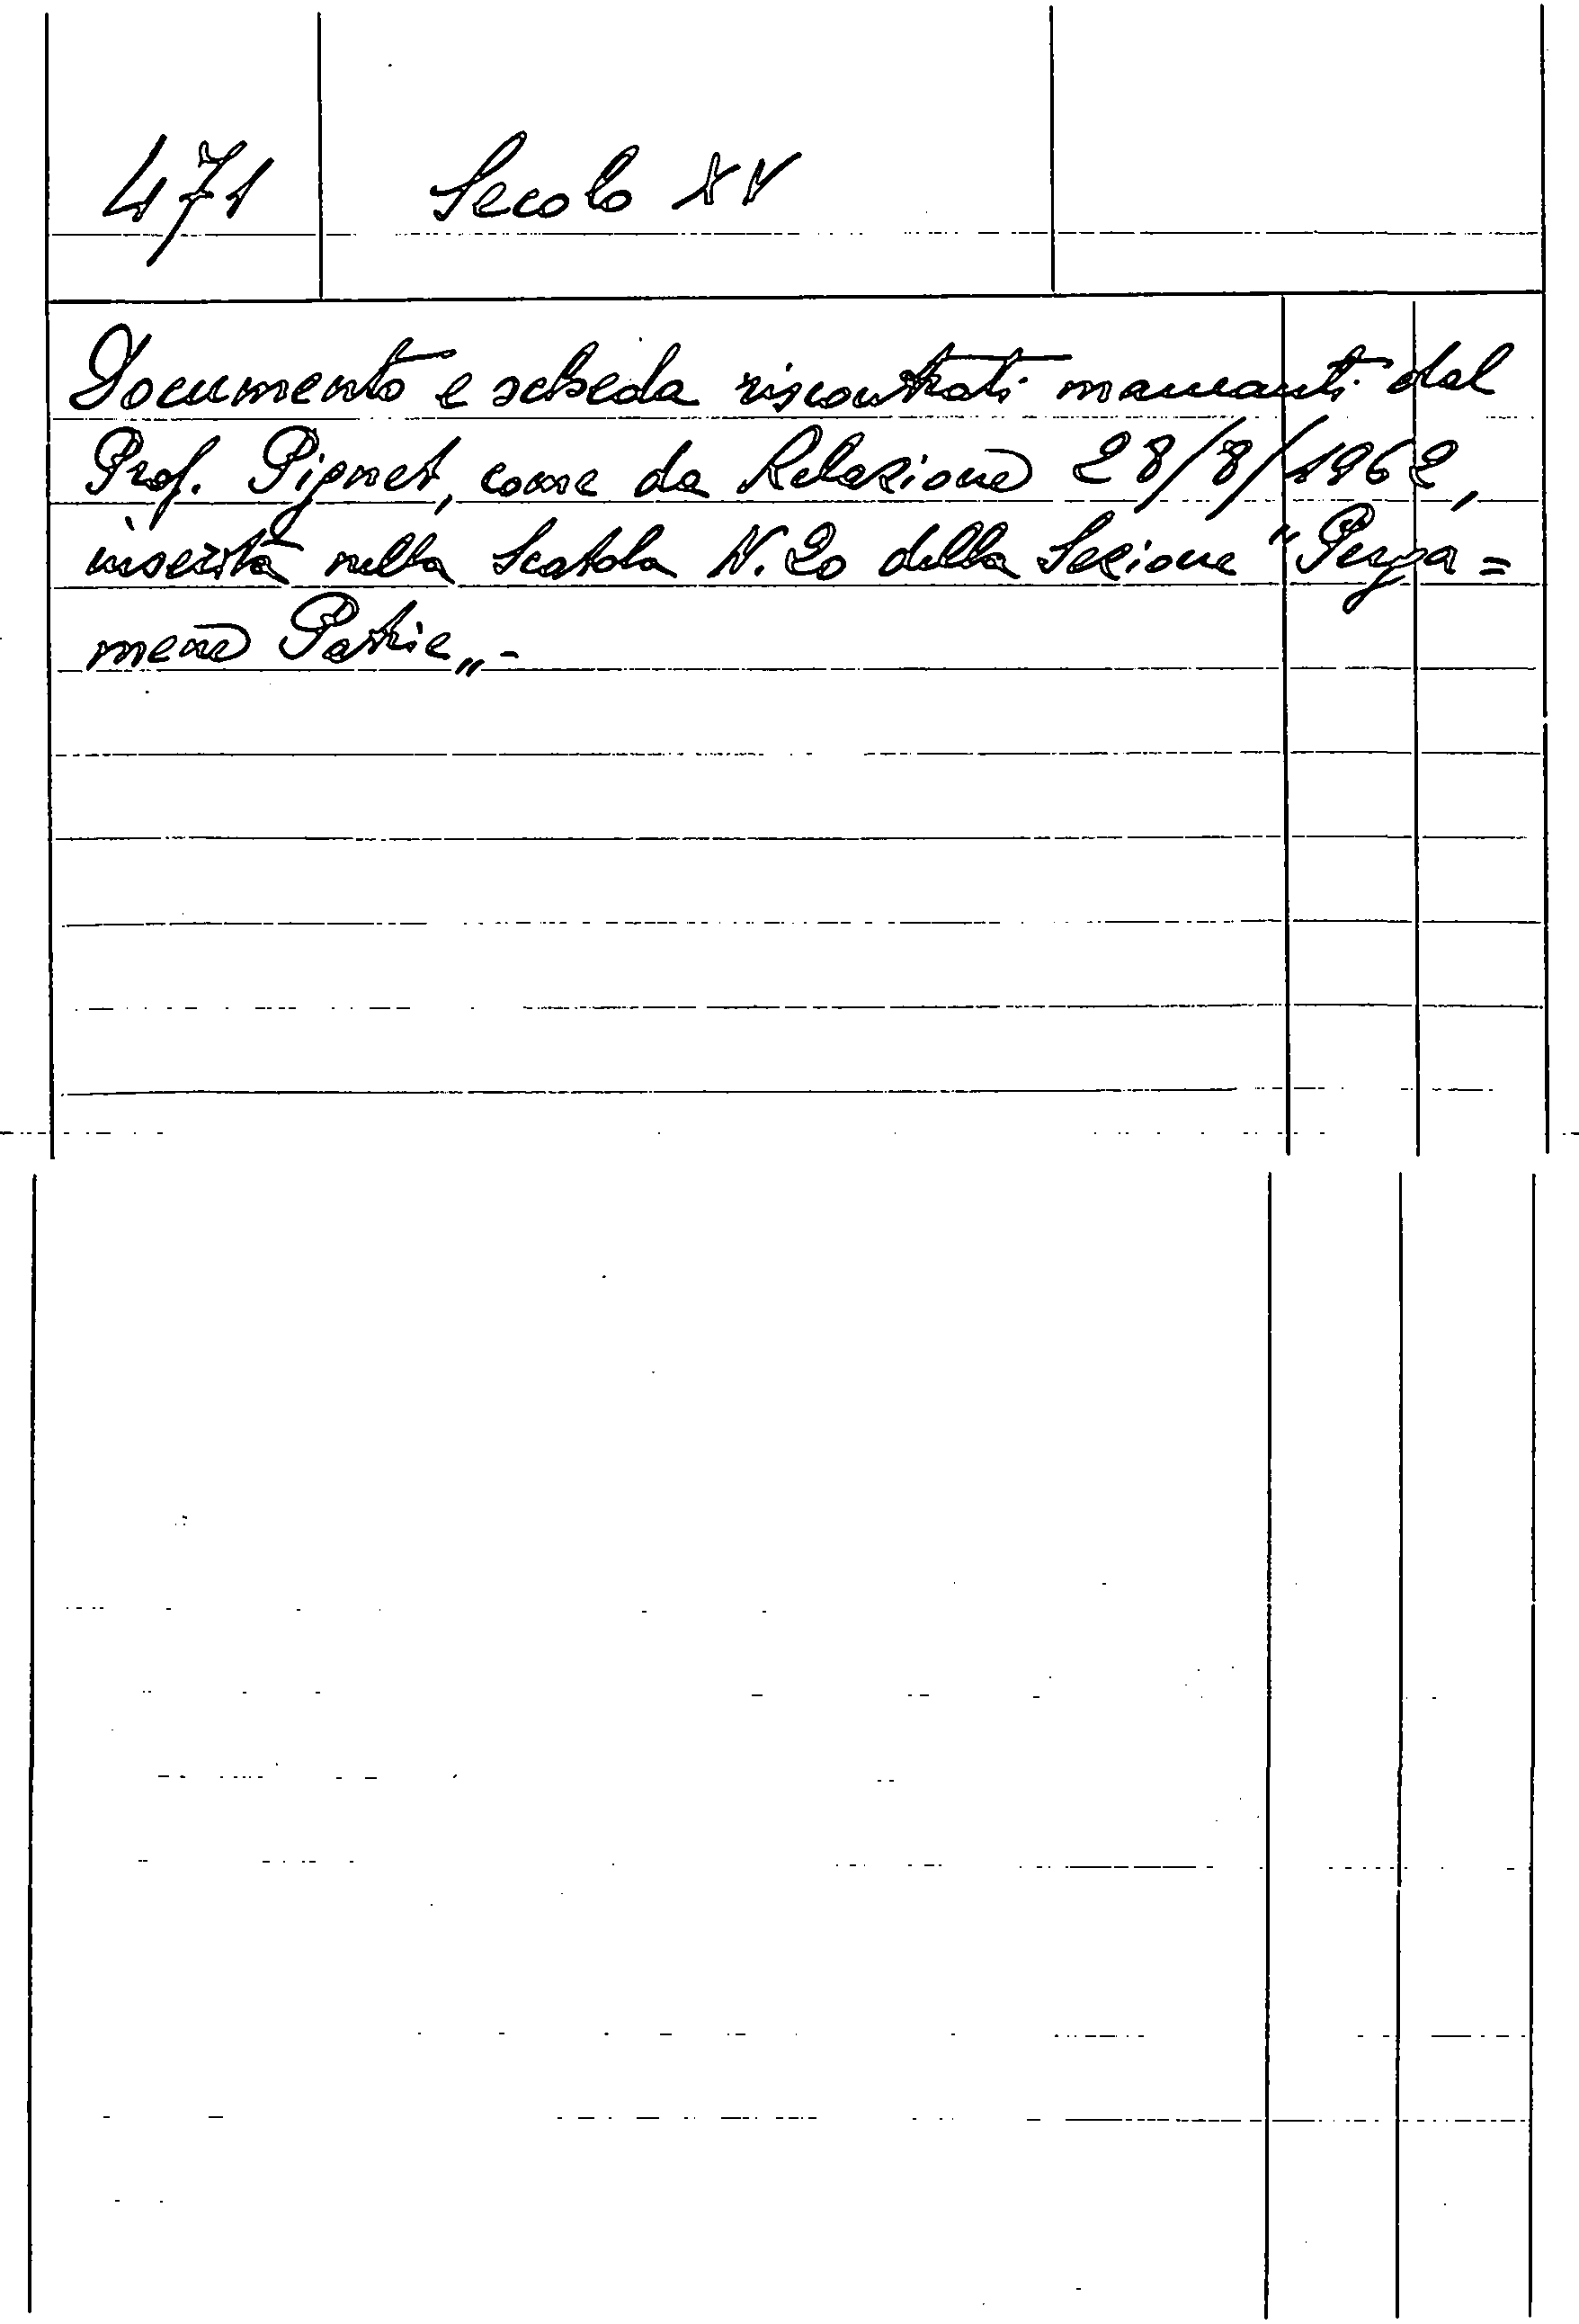 471 Secolo XV
Documento e scheda riscontrati mancanti dal
Prof. Pignet, come da Relazione 28/8/1962,
inserita nella Scatola N. 20 della Sezione "Perga=
mene Patrie„-